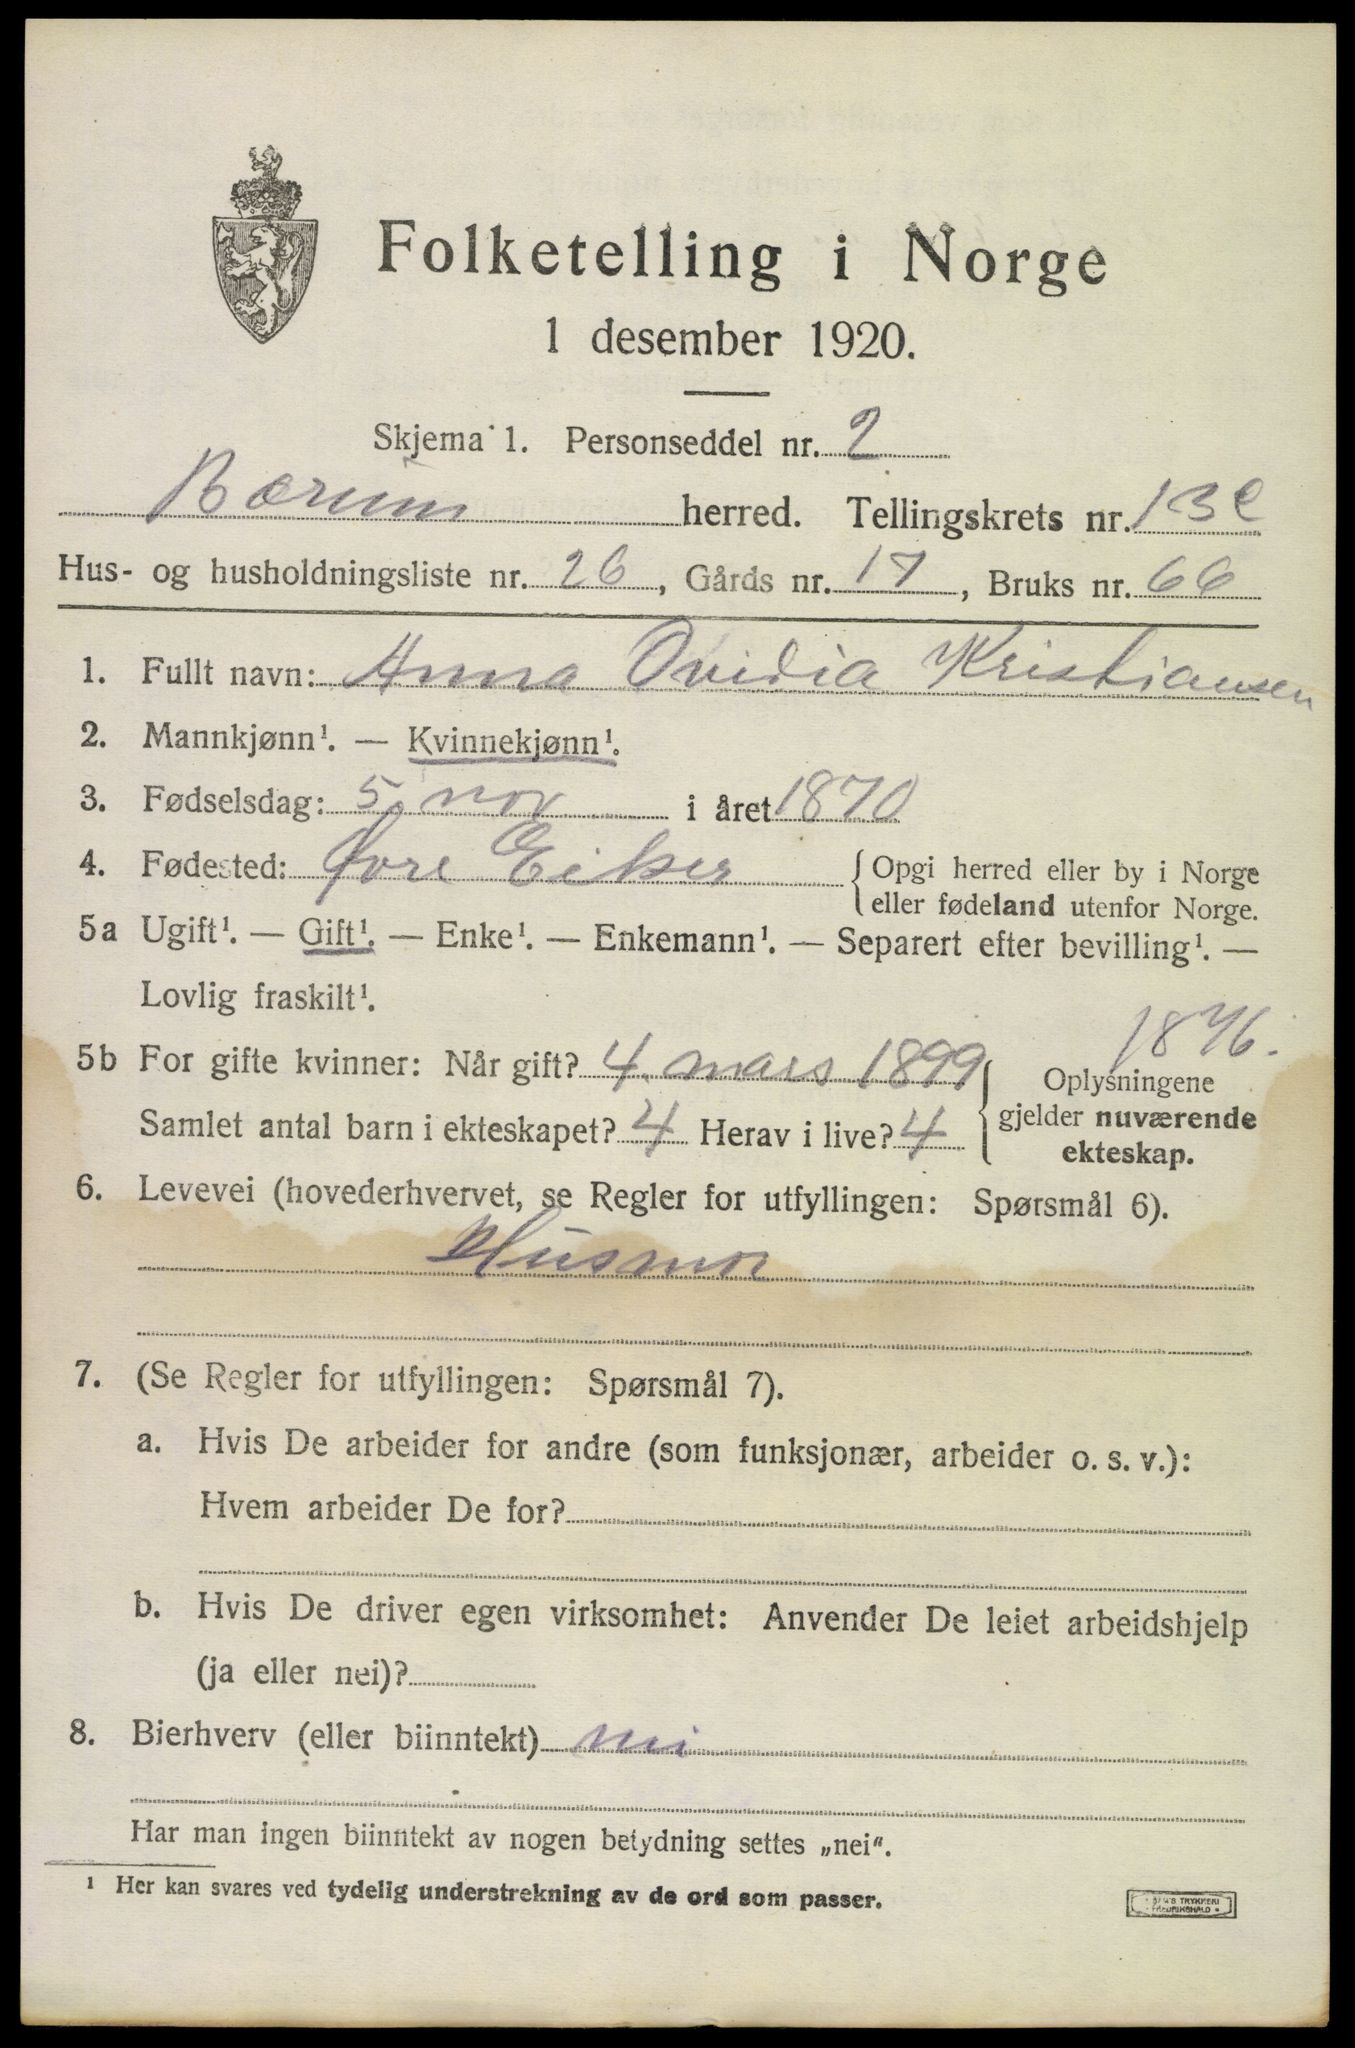 Folketelling i Norge
1 desember 1920.
Skjema 1. Personseddel nr. 2
Bærum herred. Tellingskrets nr. 13c
Hus- og husholdningsliste nr. 26, Gårds nr. 17, Bruks nr. 66
1. Fullt navn: Anna Ovidia Kristiansen
2. Mannkjønn¹. — Kvinnekjønn¹.
3. Fødselsdag: 5 nov i året 1870
4. Fødested: Øvre Eiker { Opgi herred eller by i Norge
eller fødeland utenfor Norge.
5a Ugift¹. — Gift¹. — Enke¹. — Enkemann¹. — Separert efter bevilling¹. —
Lovlig fraskilt¹.
5b For gifte kvinner: Når gift? 4. mars 1899 { Oplysningene
Samlet antal barn i ekteskapet? 4 Herav i live? 4 gjelder nuværende
ekteskap.
6. Levevei (hovederhvervet, se Regler for utfyllingen: Spørsmål 6).
Husmor
7. (Se Regler for utfyllingen: Spørsmål 7).
a. Hvis De arbeider for andre (som funksjonær, arbeider o. s. v.):
Hvem arbeider De for?
b. Hvis De driver egen virksomhet: Anvender De leiet arbeidshjelp
(ja eller nei)?
8. Bierhverv (eller biinntekt) nei
Har man ingen biinntekt av nogen betydning settes „nei".
¹ Her kan svares ved tydelig understrekning av de ord som passer.
TRYKKERI
FREDRIKSHALD